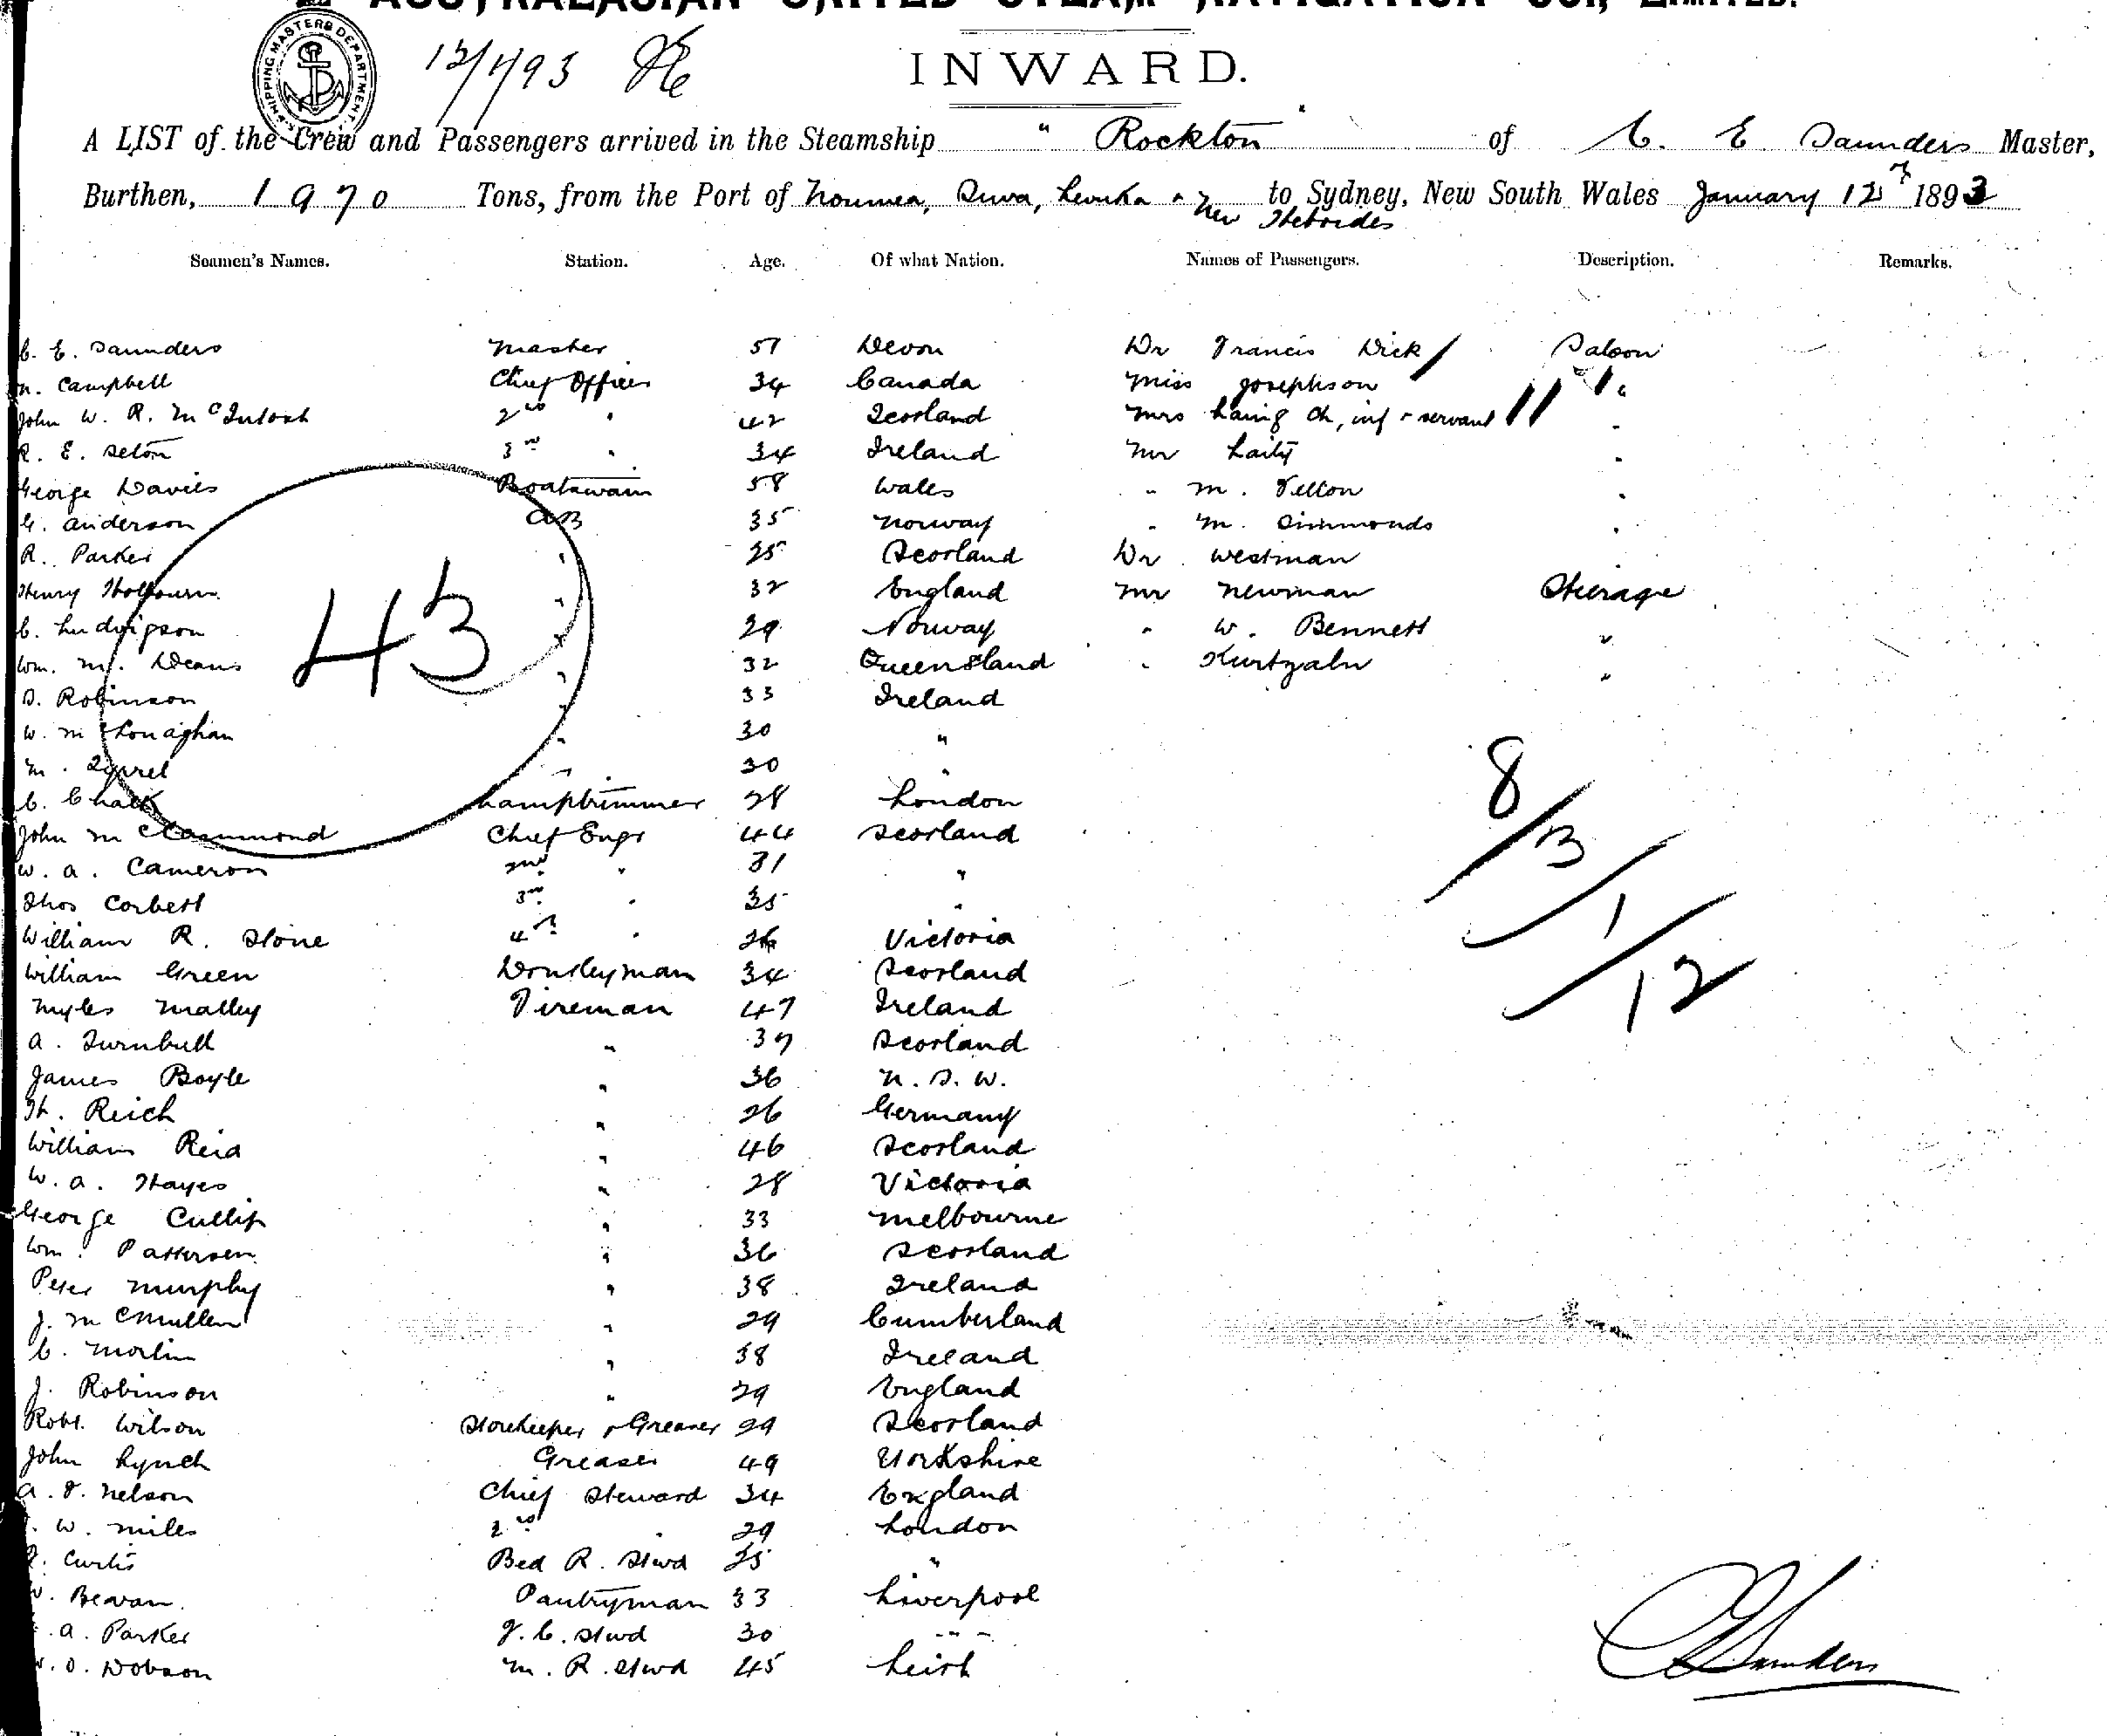 AUSTRALASIAN UNITED STEAM NAVIGATION CO., LIMITED.
SHIPPING MASTERS DEPARTMENT
12/1/93
INWARD.
A LIST of the Crew and Passengers arrived in the Steamship "Rockton" of C. E. Saunders Master,
Burthen, 1970 Tons, from the Port of Noumea, Suva, Levuka & New Hebrides to Sydney, New South Wales January 12th 1893
Seamen's Names. Station. Age. Of what Nation. Names of Passengers. Description. Remarks.
C. E. Saunders Master 51 Devon Dr Francis Dick Saloon
N. Campbell Chief Officer 34 Canada Miss Josephson "
John W. R. McIntosh 2nd " 42 Scotland Mrs Laing Ch, inf & servant "
R. E. Seton 3rd " 34 Ireland Mr Laity "
George Davies Boatswain 58 Wales " M. Felton "
G. Anderson AB 35 Norway " M. Simmonds "
R. Parker " 25 Scotland Dr Westman
Henry Holbourn " 32 England Mr Newman Steerage
C. Ludvigson " 29 Norway " W. Bennett "
Wm. M. Deans " 32 Queensland " Kurtzahn "
S. Robinson " 33 Ireland
W. McLonaghan " 30 "
M. Tyrrel " 30 "
C. Chalk Lamptrimmer 28 London
John McCammond Chief Engr 44 Scotland
W. A. Cameron 2nd " 31 "
Thos Corbett 3rd " 35 "
William R. Stone 4th " 26 Victoria
William Green Donkeyman 34 Scotland
Myles Malley Fireman 47 Ireland
A. Turnbull " 37 Scotland
James Boyle " 36 N. S. W.
H. Reich " 26 Germany
William Reid " 46 Scotland
W. A. Hayes " 28 Victoria
George Cullip " 33 Melbourne
Wm. Patterson " 36 Scotland
Peter Murphy " 38 Ireland
J. McMullen " 29 Cumberland
C. Morlin " 38 Ireland
J. Robinson " 29 England
Robt. Wilson Storekeeper & Greaser 29 Scotland
John Lynch Greaser 49 Yorkshire
A. F. Nelson Chief Steward 34 England
W. Miles 2nd " 29 London
Curtis Bed R. Stwd 25 "
W. Bevan Pantryman 33 Liverpool
A. Parker F. C. Stwd 30 "
W. S. Dobson M. R. Stwd 45 Leith
43
8/3/1/12
C E Saunders